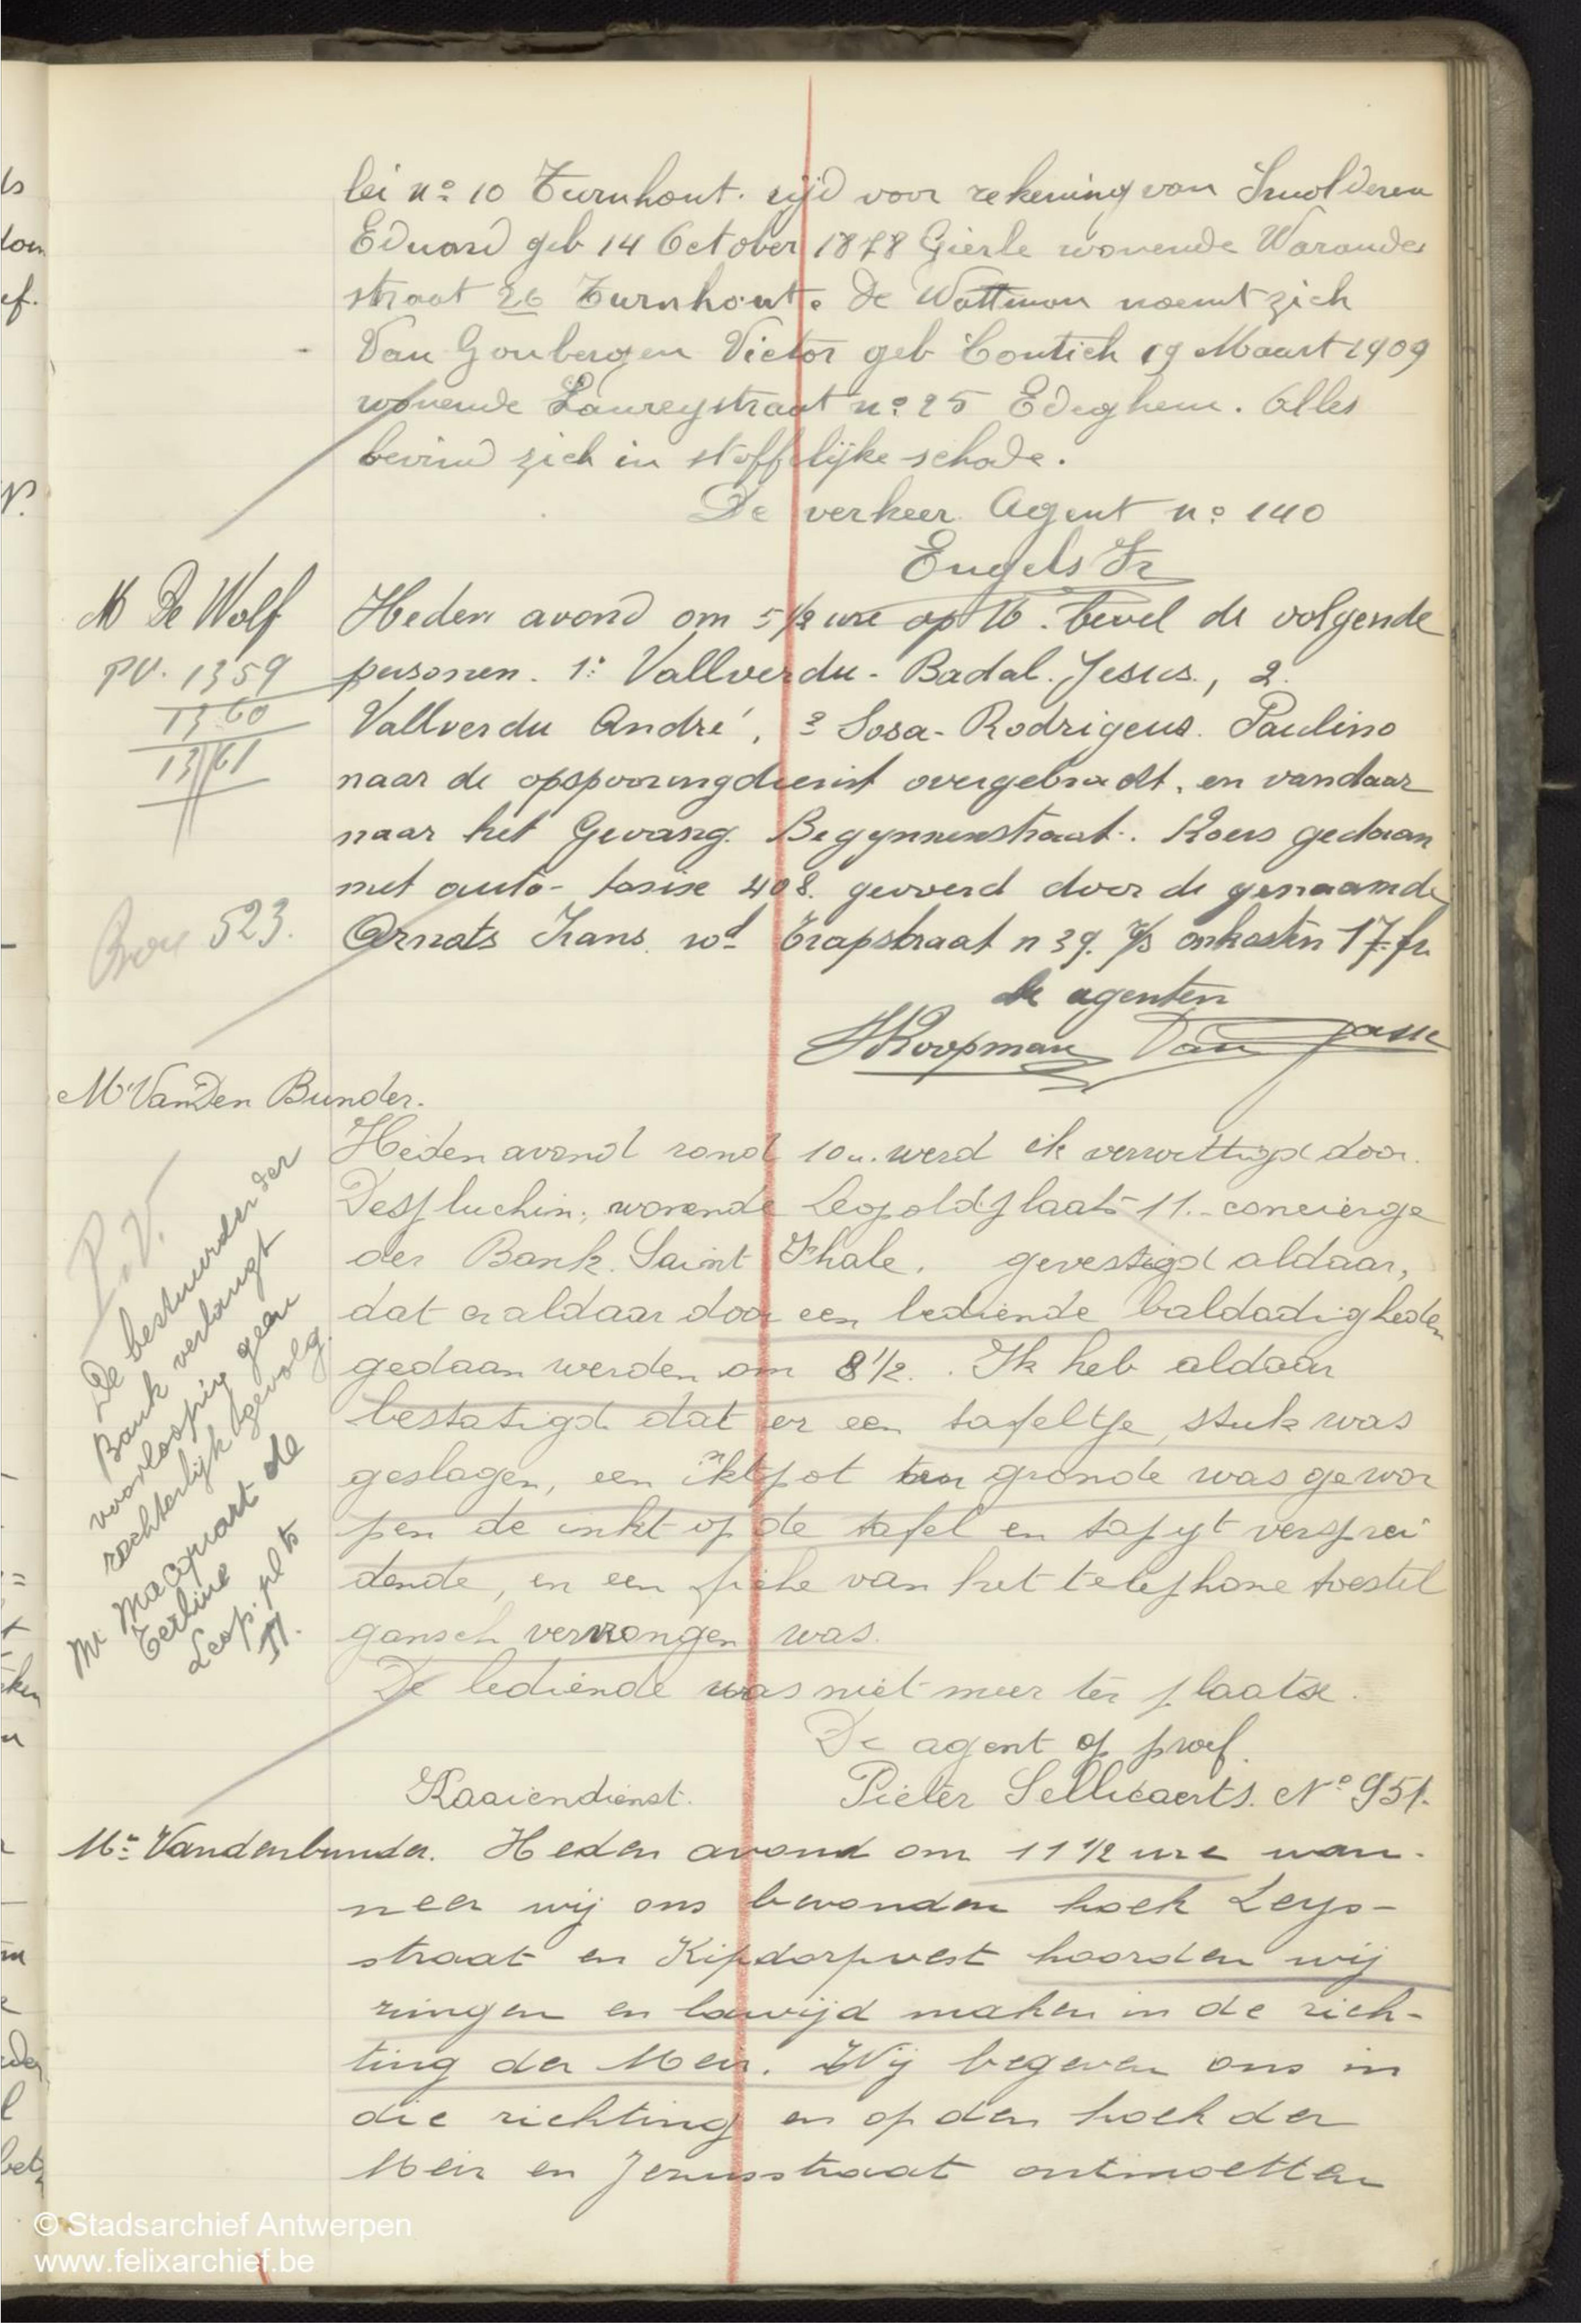 lei nº 10 Turnhout. rijd voor rekening van Smolderen
Eduard geb 14 October 1878 Gierle wonende Warande
straat 26 Turnhout. De Wattman noemt zich
Van Gonbergen Victor geb Contich 19 Maart 1909
wonende Laureystraat nº 25 Edeghem. Alles
bevind zich in stoffelijke schade.
De verkeer Agent nº 140
Engels Fr
M De Wolf
PV. 1359
1360
1361
523.
Heden avond om 5 1/2 ure op M. bevel de volgende
personen. 1: Vallverdu - Badal. Jesus., 2.
Vallverdu André, 3 Sosa - Rodrigeus. Paulino
naar de opspooringdienst overgebracht, en vandaar
naar het Gevang. Begynnenstraat. Koers gedaan
met auto - taxise 408. gevoerd door de genaamde
Arnats Frans. wd Trapstraat n 39. onkosten 17 fr.
de agenten
Koopman Van
Mr VanDen Bunder.
P.V.
De bestuurder der
Bank verlangt
voorloopig geen
rechterlijk gevolg.
Mr Macquart de
Terline
Leop. plts
11.
Heden avond rond 10 u. werd ik verwittigd door.
Despluchin; wonende Leopoldplaats 11. - concierge
der Bank. Saint Phale. gevestigd aldaar,
dat er aldaar door een bediende baldadigheden
gedaan werden om 8 1/2. . Ik heb aldaar
bestatigd dat er een tafeltje, stuk was
geslagen, een inktpot ten gronde was gewor
pen de inkt op de tafel en tapijt versprei
dende, en een fiche van het telephone toestel
gansch verwrongen was.
De bediende was niet meer ter plaatse.
De agent op proef.
Pieter Sellicaerts. Nº 951.
Kaaiendienst.
Mr Vandenbunder. Heden avond om 11 1/2 ure wan-
neer wij ons bevonden hoek Leys-
straat en Kipdorpvest hoorden wij
zingen en lawijd maken in de rich-
ting der Meir. Wij begeven ons in
die richting en op den hoek der
Meir en Jezusstraat ontmoetten
© Stadsarchief Antwerpen
www.felixarchief.be